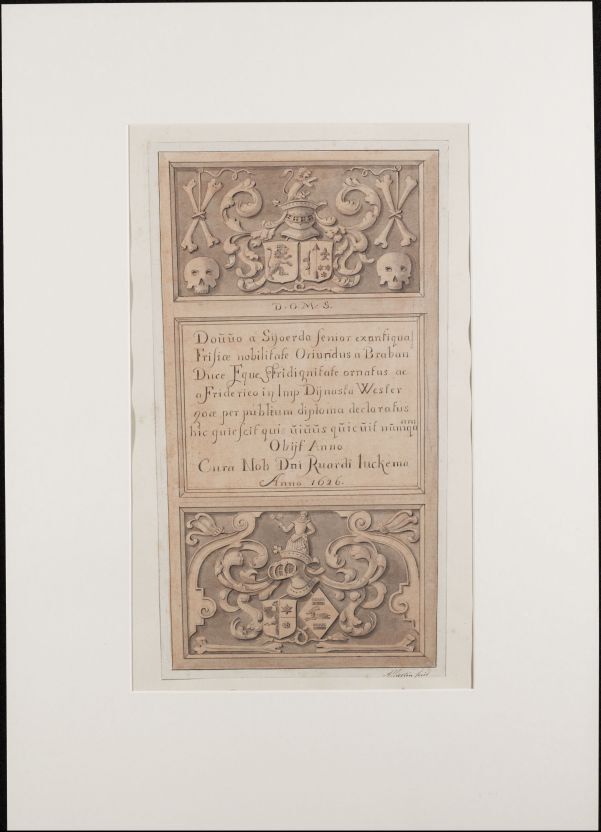 D·O·M·S.
Doũũo a Sijoerda senior exantiqua
Frisiæ nobilitate Oriundus a Braban
Duce Equestri dignitate ornatus ac
a Friderico in Imp Dÿnasta Wester
goæ per publicum diploma declaratus
hic quiescit qui ũiũũs qũicũit nũnqũã
Obijt Anno
Cura Nob Dni Ruardi Iuckema
Anno 1626.